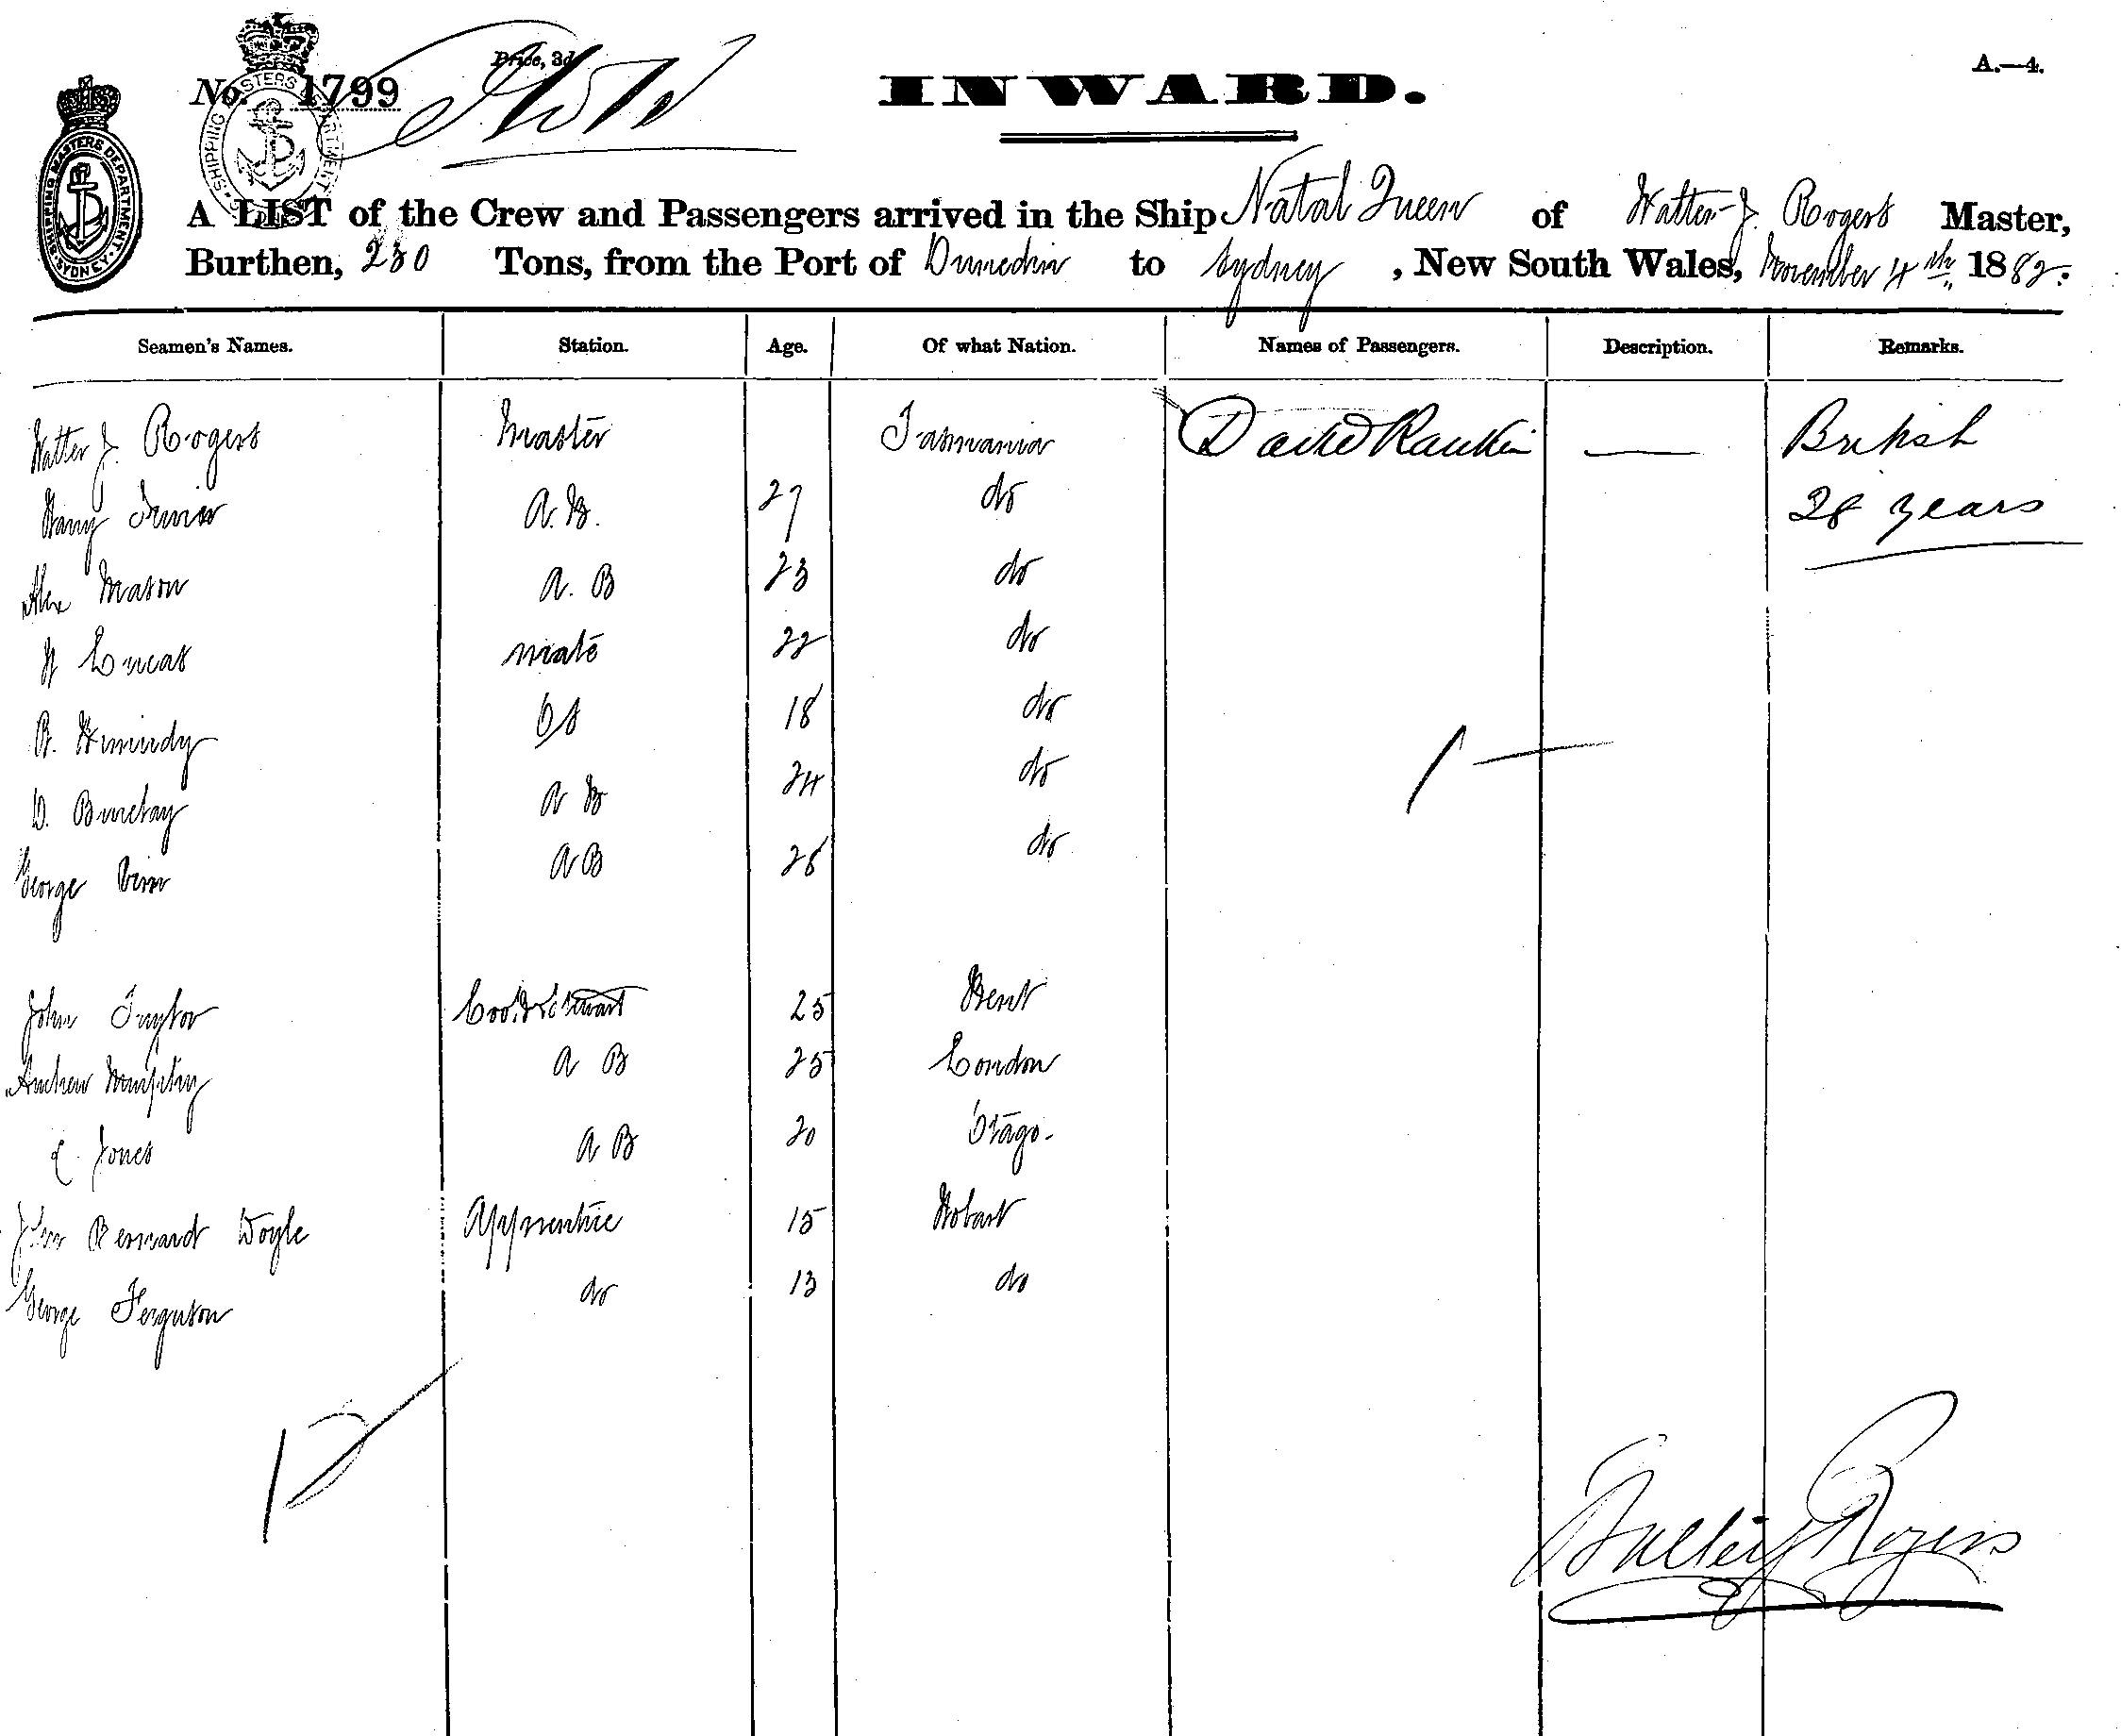 No. 1799
Price, 3d
INWARD.
A.—4.
SHIPPING MASTERS DEPARTMENT SYDNEY
SHIPPING MASTERS DEPARTMENT
A LIST of the Crew and Passengers arrived in the Ship Natal Queen of Walter J. Rogers Master,
Burthen, 230 Tons, from the Port of Dunedin to Sydney, New South Wales, November 4th 1882.
Seamen's Names. Station. Age. Of what Nation. Names of Passengers. Description. Remarks.
Walter J. Rogers Master Tasmania David Rankin — British
Harry A.B. 27 do 28 years
Alex Mason A. B 23 do
H Lucas Mate 22 do
R. OS 18 do
D. A B 24 do
George A B 26 do
John Taylor Cook & Stewart 25 Kent
Andrew Murphy A B 25 London
C. Jones A B 20 Otago.
John Bernard Doyle Apprentice 15 Hobart
George Ferguson do 13 do
1
12
Walter J Rogers